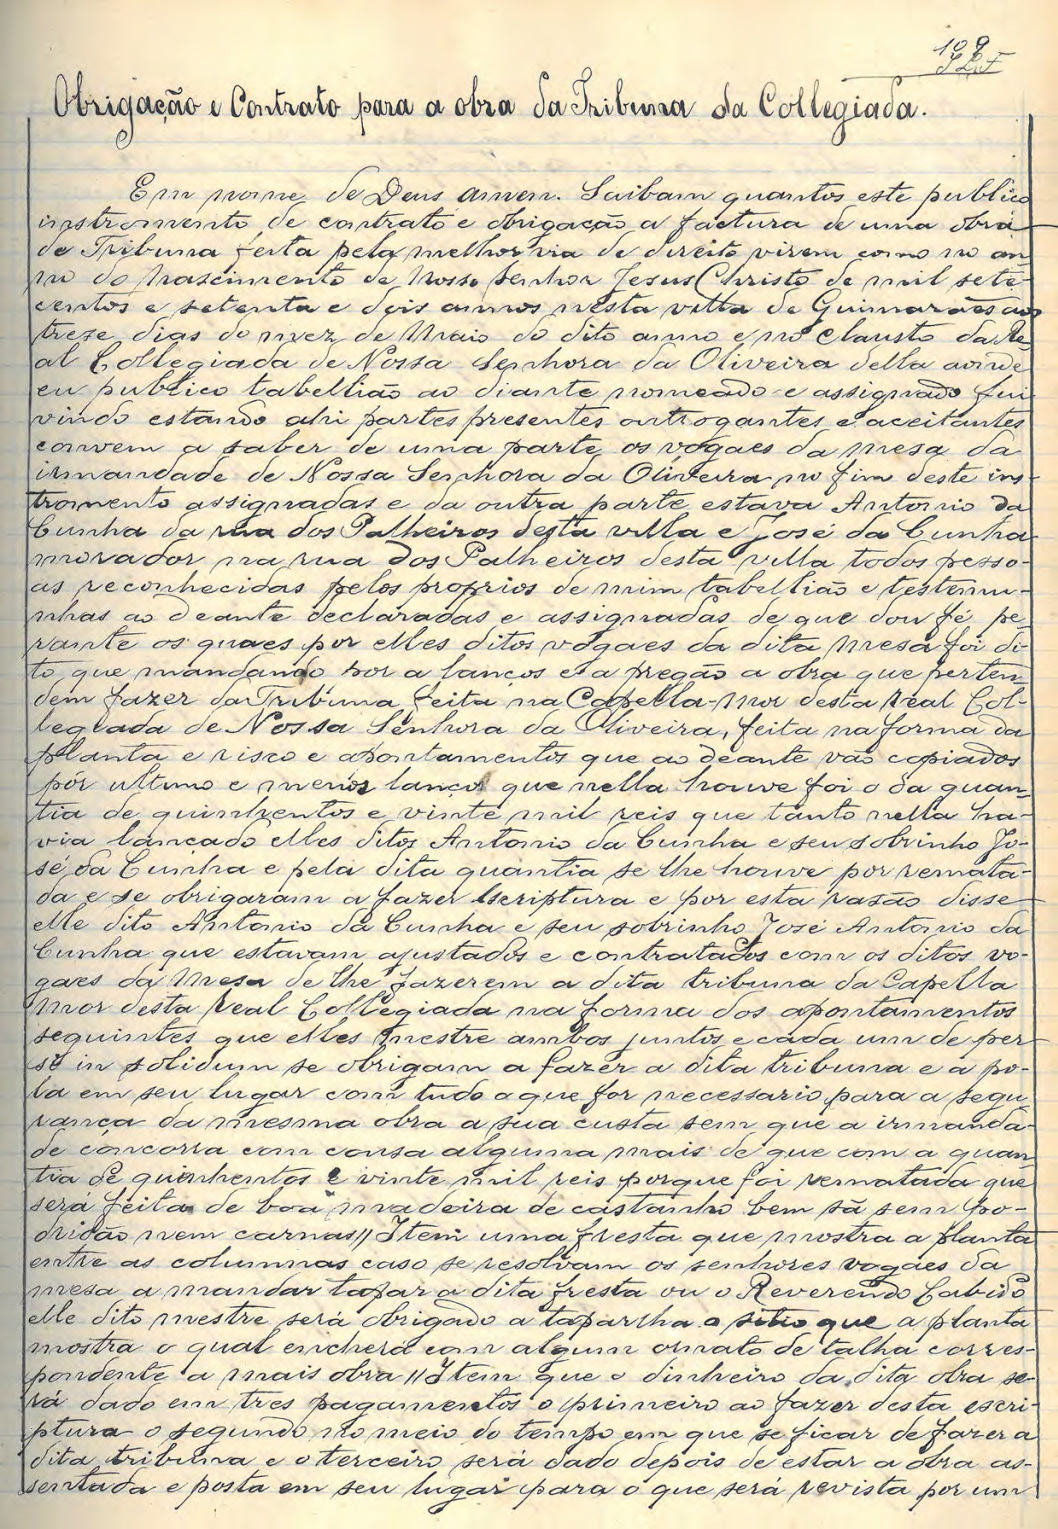 109
Obrigação e Contrato para a obra da Tribuna da Collegiada.
Em nome de Deus amen. Saibam quantos este publico
instromento de contrato e obrigação a factura de uma obra
de Tribuna feita pela melhor via de direito virem como no an
no do Nascimento de Nosso Senhor Jesus Christo de mil sete-
centos e setenta e dois annos nesta villa de Guimarães aos
treze dias do mez de Maio do dito anno e no clausto da Re-
al Collegiada de Nossa Senhora da Oliveira della aonde
eu publico tabellião ao diante nomeado e assignado fui
vindo estando ahi partes presentes outrogantes e aceitantes
convem a saber de uma parte os vogaes da mesa da
irmandade de Nossa Senhora da Oliveira no fim deste ins
tromento assignadas e da outra parte estava Antonio da
Cunha da rua dos Palheiros desta villa e José da Cunha
morador na rua dos Palheiros desta villa todos pesso-
as reconhecidas pelos proprios de mim tabellião e testemu-
nhas ao deante declaradas e assignadas de que dou fé pe-
rante os quaes por elles ditos vogaes da dita Mesa foi di-
to que mandando por a lanços e a pregão a obra que perten
dem fazer da Tribuna feita na Capella-mor desta Real Col-
legiada de Nossa Senhora da Oliveira, feita na forma da
planta e risco e apontamentos que ao deante vão copiados
por ultimo e menos lanço que nella houve foi o da quan-
tia de quinhentos e vinte mil reis que tanto nella ha-
via lançado elles ditos Antonio da Cunha e seu sobrinho Jo-
sé da Cunha e pela dita quantia se lhe houve por remata-
da e se obrigaram a fazer escriptura e por esta rasão disse
elle dito Antonio da Cunha e seu sobrinho José Antonio da
Cunha que estavam ajustados e contratados com os ditos vo-
gaes da Mesa de lhe fazerem a dita tribuna da Capella
mor desta Real Collegiada na forma dos apontamentos
seguintes que elles mestre ambos juntos e cada um de per
si in solidum se obrigam a fazer a dita tribuna e a po-
la em seu lugar com tudo o que for necessario para a segu-
rança da mesma obra a sua custa sem que a irmanda-
de concorra com cousa alguma mais de que com a quan
tia de quinhentos e vinte mil reis porque foi rematada que
será feita de boa madeira de castanho bem sã sem po-
dridão nem carnas// Item uma fresta que mostra a planta
entre as columnas caso se resolvam os senhores vogaes da
mesa a mandar tapar a dita fresta ou o Reverendo Cabido
elle dito mestre será obrigado a tapartha o sitio que a planta
mostra o qual encherá com algum ornato de talha corres-
pondente a mais obra// Item que o dinheiro da dita obra se-
rá dado em tres pagamentos o primeiro ao fazer desta escri-
ptura o segundo no meio do tempo em que se ficar de fazer a
dita tribuna e o terceiro será dado depois de estar a obra as-
sentada e posta em seu lugar para o que será revista por um